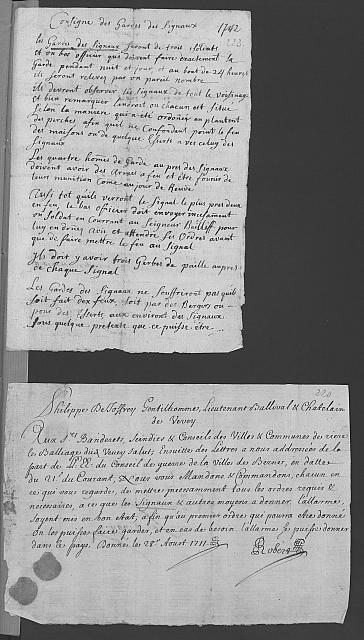 Consigne des Gardes des Signaux 1742
223.
les Gardes des Signeux seront de trois soldats
et un bas officier qui doivent faire exactement la
Garde pendant nuit et jour, et au bout de 24 heures
ils seront relevez par un pareil nombre
ils devront observer les signaux de tout le voisinage
et bien remarquer l'endroit ou chacun est situé
selon la maniere qui a été ordonée en plantent
des perches afin quel ne confondent point le feu
des maisons ou de quelque Eserts a vec celuy des
Signaux
Les quattre homes de Garde au pres des Signaux
doivent avoir des Armes a feu et etre fournis de
leur munition come au jour de Reveüe
Aussi tot qu'ils verront le Signal le plus pres deux
en feu, le bas officier doit envoyer incessament
un Soldat en courrant au Seigneur Baillif pour
luy en doner Avis et attendre ses Ordres avant
que de faire mettre le feu au Signal
Ils doit y avoir trois Gerbes de paille aupres
de chaque Signal
Les Gardes des Signaux ne souffriront pas qu'il
soit fait des feux, soit par des Bergers ou
pour des Eserts aux environs des Signaux
sous quelque pretexte que ce puisse etre
220
Philippe De Joffrey Gentilhomme, Lieutenant Ballival & Chatelain
de Vevey
Aux Srs Banderets, Scindics & Conseils des Villes & Communes des riere
le Balliage dud. Vevey Salut; Ensuitte des Lettres a nous addressées de la
part de LL. EE. du Conseil de guerre de la Ville de Berne, en datte
du 21e du Courant, Nous vous Mandons & Commandons, chacun en
ce que vous regarde, de mettre incessamment tous les ordres requis &
necessaires, a ce que les Signaux & autres moyens a donner l'allarme,
soyent mis en bon Etat, afin qu'au premier ordre qui pourra etre donné
on les puisse faire garder, et en cas de besoin l'allarme se puisse donner
dans le pays. Donné le 28e Aoust 1711.